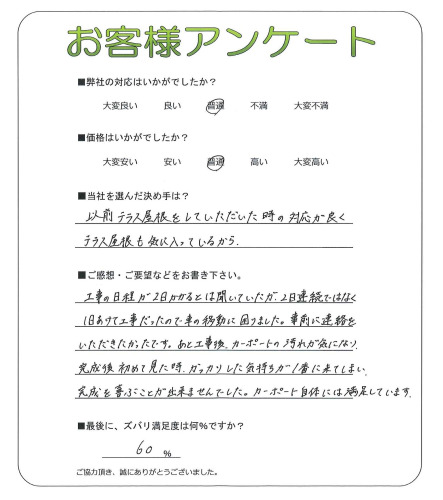 お客様アンケート
■弊社の対応はいかがでしたか？
大変良い 良い 普通 不満 大変不満
■価格はいかがでしたか？
大変安い 安い 普通 高い 大変高い
■当社を選んだ決め手は？
以前テラス屋根をしていただいた時の対応が良く
テラス屋根も気に入っているから.
■ご感想・ご要望などをお書き下さい。
工事の日程が2日かかるとは聞いていたが、2日連続ではなく
1日あけて工事だったので車の移動に困りました。事前に連絡を
いただきたかったです。あと工事後、カーポートの汚れが気になり、
完成後初めて見た時、ガッカリした気持ちが1番に来てしまい
完成を喜ぶことが出来ませんでした。カーポート自体には満足しています.
■最後に、ズバリ満足度は何％ですか？
60 ％
ご協力頂き、誠にありがとうございました。